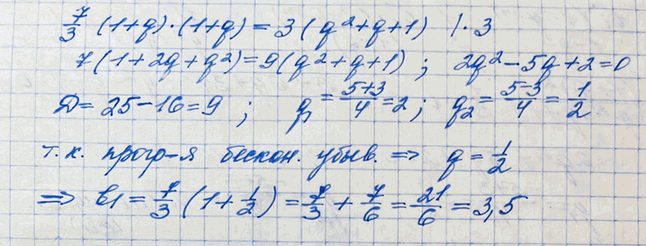 7/3 (1+q)·(1+q) = 3(q²+q+1) |·3
7(1+2q+q²)=9(q²+q+1) ; 2q²-5q+2=0
D=25-16=9 ; q₁=(5+3)/4=2 ; q₂=(5-3)/4=1/2
т.к. прогр-я бескон. убыв. => q=1/2
=> b₁=7/3(1+1/2)=7/3+7/6=21/6=3,5